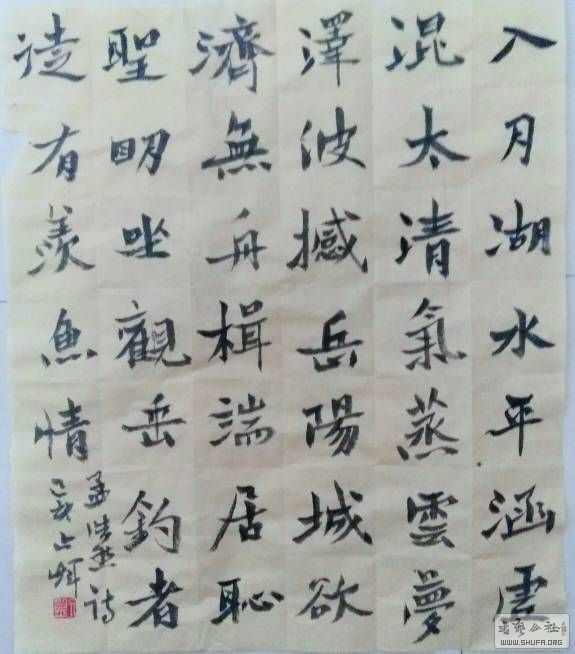 入月湖水平涵虛
混太清氣蒸雲夢
澤波撼岳陽城欲
濟無舟楫端居恥
聖明坐觀垂釣者
徒有羨魚情
孟浩然詩
己亥
书艺公社
WWW.SHUFA.ORG